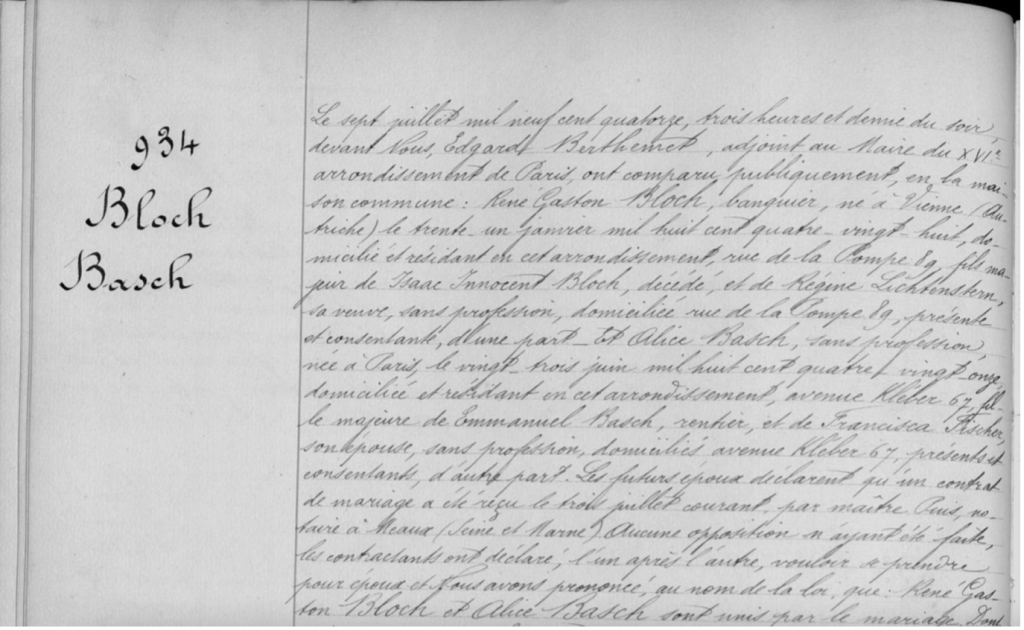 934
Bloch
Basch
Le sept juillet mil neuf cent quatorze, trois heures et demie du soir,
devant Nous, Edgard Berthemet, adjoint au Maire du XVIe
arrondissement de Paris, ont comparu publiquement, en la mai-
son commune : René Gaston Bloch, banquier, né à Vienne (Au-
triche) le trente-un janvier mil huit cent quatre-vingt-huit, do-
micilié et résidant en cet arrondissement, rue de la Pompe 89, fils ma-
jeur de Isaac Innocent Bloch, décédé, et de Régine Lichtenstern,
sa veuve, sans profession, domiciliée rue de la Pompe 89, présente
et consentante, d'une part _ Et Alice Basch, sans profession,
née à Paris, le vingt-trois juin mil huit cent quatre-vingt-onze,
domiciliée et résidant en cet arrondissement, avenue Kléber 67, fil-
le majeure de Emmanuel Basch, rentier, et de Francisca Fischer,
son épouse, sans profession, domiciliés avenue Kléber 67, présents et
consentants, d'autre part. Les futurs époux déclarent qu'un contrat
de mariage a été reçu le trois juillet courant, par maître Puis, no-
taire à Meaux (Seine et Marne) Aucune opposition n'ayant été faite,
les contractants ont déclaré, l'un après l'autre, vouloir se prendre
pour époux et Nous avons prononcé, au nom de la loi, que : René Gas-
ton Bloch et Alice Basch sont unis par le mariage. Dont